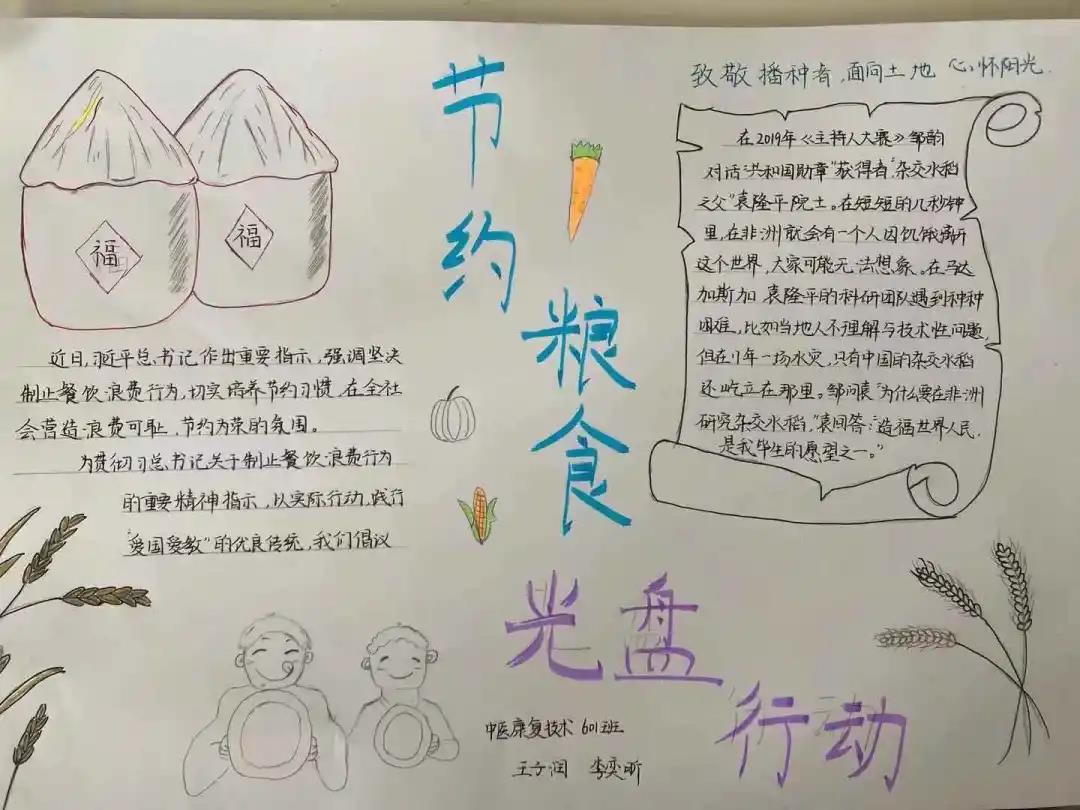 节约
粮食
光盘
行动
福
福
近日,习近平总书记作出重要指示,强调坚决
制止餐饮浪费行为,切实培养节约习惯,在全社
会营造浪费可耻,节约为荣的氛围。
为贯彻习总书记关于制止餐饮浪费行为
的重要精神指示,以实际行动,践行
“爱国爱教”的优良传统,我们倡议
致敬播种者,面向土地 心怀阳光.
在2019年《主持人大赛》邹韵
对话“共和国勋章”获得者,“杂交水稻
之父”袁隆平院士。在短短的几秒钟
里,在非洲就会有一个人因饥饿离开
这个世界,大家可能无法想象。在马达
加斯加 袁隆平的科研团队遇到种种
困难,比如当地人不理解与技术性问题,
但在11年一场水灾,只有中国的杂交水稻
还屹立在那里。邹问袁“为什么要在非洲
研究杂交水稻,”袁回答:“造福世界人民,
是我毕生的愿望之一。”
中医康复技术 601班
王子润 李奕昕